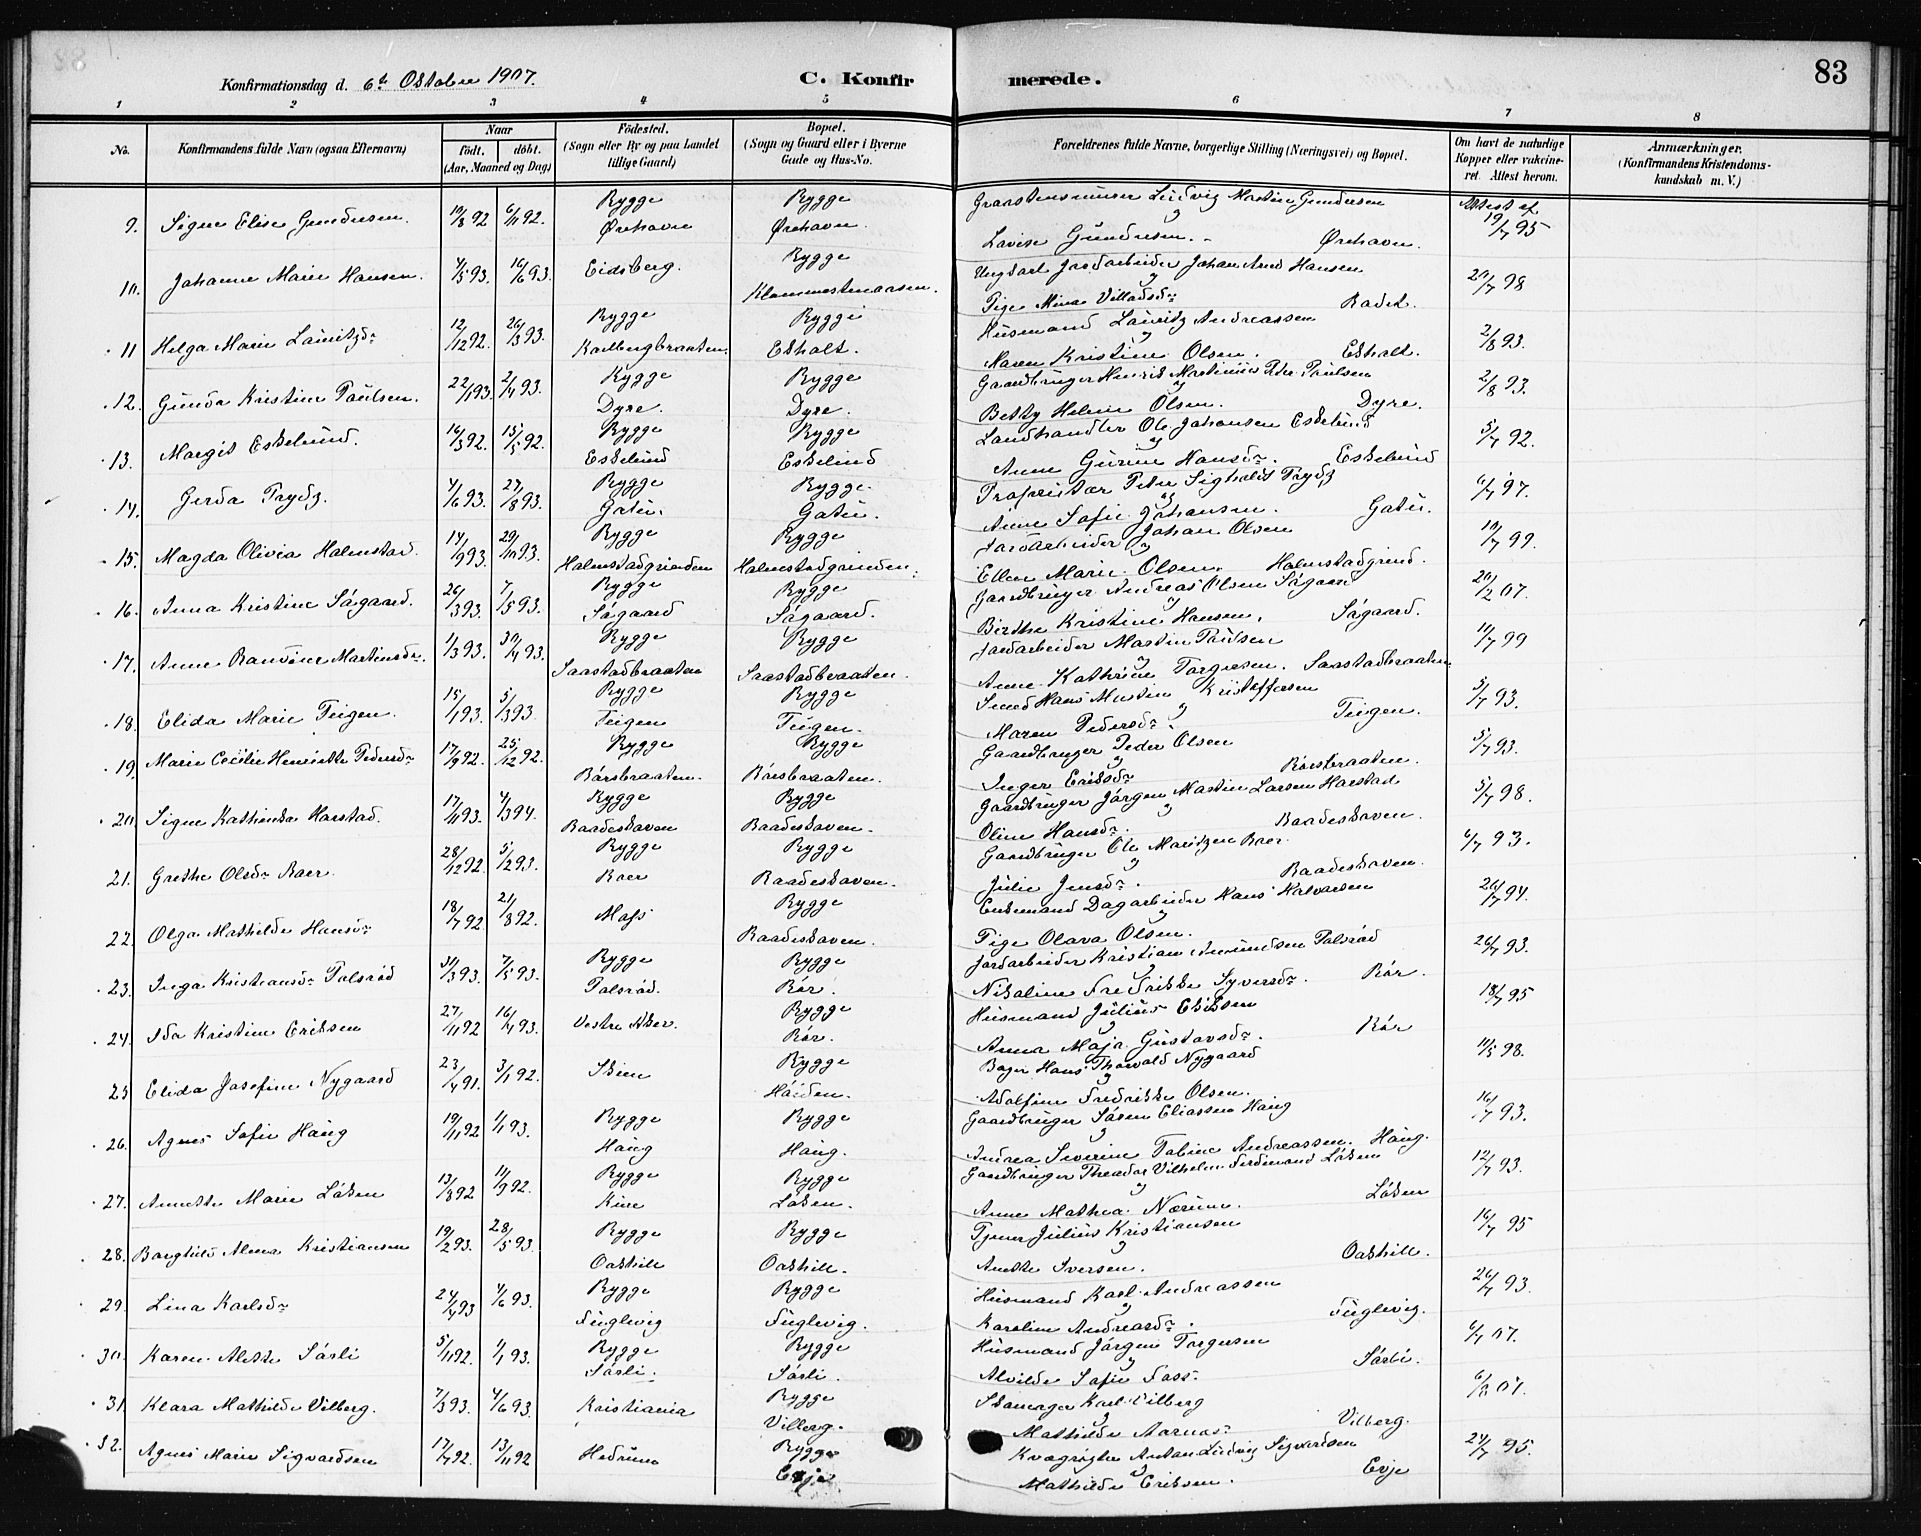 83
Konfirmationsdag d. 6te Oktober 1907.
C. Konfirmerede.
1 2 3 4 5 6 7 8
No.
Konfirmandens fulde Navn (ogsaa Efternavn)
Naar
født. døbt.
(Aar, Maaned og Dag)
Fødested.
(Sogn eller By og paa Landet
tillige Gaard)
Bopæl.
(Sogn og Gaard eller i Byerne
Gade og Hus-No.
Forældrenes fulde Navne, borgerlige Stilling (Næringsvei) og Bopæl.
Om havt de naturlige
Kopper eller vakcine-
ret. Attest herom.
Anmærkninger.
(Konfirmandens Kristendoms-
kundskab m. V.)
9. Signe Elise Gundersen. 19/8 92 6/11 92. Rygge Ørehavn Rygge Ørehavn. Graastensminer Ludvig Martin Gundersen Attest af
og 19/7 95
Lovise Gundersen. Ørehavn.
10. Johanne Marie Hansen. 4/5 93. 16/6 93. Eidsberg. Rygge Klommestenaasen. Ungkarl Jordarbeider Johan Arnd Hansen 20/7 98
og
Pige Mina Villadsdr Radet.
11 Helga Marie Lauritzdr 12/12 92. 26/3 93. Rygge Karlbergbraaten. Rygge Ekholt. Husmand Lauritz Andreassen 2/8 93.
og
Maren Kristine Olsen. Ekholt.
12. Gunda Kristine Paulsen. 22/1 93. 2/4 93. Rygge Dyre. Rygge Dyre. Gaardbruger Henrik Martinius Peter Paulsen 2/8 93.
og
Betty Helene Olsen. Dyre.
13. Margit Eskelund. 16/3 92. 15/5 92. Rygge Eskelund Rygge Eskelund Landhandler Ole Johansen Eskelund 5/7 92.
og
Anne Gurine Hansdr. Eskelund
14. Gerda Trydz. 4/6 93. 27/8 93. Rygge Gatu. Rygge. Gatu. Proprietær Peter Sighaldt Trydz 6/7 97.
og
Anne Sofie Johansen. Gatu.
15. Magda Olivia Halmstad. 14/9 93. 29/10 93. Rygge Halmstadgrinden Rygge Halmstadgrinden. Jordarbeider Johan Olsen 10/7 99.
og
Ellen Marie Olsen. Halmstadgrind.
16. Anna Kristine Søgaard. 26/3 93. 7/5 93. Rygge Søgaard Rygge Søgaard. Gaardbruger Andreas Olsen Søgaard 20/2 07.
og
Birthe Kristine Hansen. Søgaard.
17. Anne Randine Martinsdr. 1/3 93. 30/4 93. Rygge Saastadbraaten Rygge Saastadbraaten. Jordarbeider Martin Paulsen 11/7 99
og
Anne Kathrine Torgersen. Saastadbraaten
18. Elida Marie Teigen. 15/1 93. 5/3 93. Rygge Teigen Rygge Teigen. Smed Hans Martin Kristoffersen 5/7 93.
og
Maren Pedersdr. Teigen.
19. Marie Cecilie Henriette Pedersdr 17/9 92. 25/12 92. Rygge Rørsbraaten. Rygge Rørsbraaten. Gaardbruger Peder Olsen 5/7 93.
Inger Eriksdr Rørsbraaten.
20. Signe Kathinka Harstad. 17/11 93. 4/3 94. Rygge Baadeskaven Rygge Baadeskaven. Gaardbruger Jørgen Martin Larsen Harstad 5/7 98.
og
Oline Hansdr. Baadeskaven.
21. Grethe Olsdr Raer. 28/12 92. 5/2 93. Rygge Raer Rygge Baadeskaven. Gaardbruger Ole Mauritzen Raer. 6/7 93.
og
Julie Jensdr. Baadeskaven.
22. Olga Mathilde Hansdr 18/7 92 21/8 92. Moss Rygge Baadeskaven. Enkemand Dagarbeider Hans Halvorsen 26/7 94.
og
Pige Olava Olsen.
23. Inga Kristiansdr Talsrød 30/3 93. 7/5 93. Rygge Talsrød. Rygge Rør. Jordarbeider Kristian Amundsen Talsrød 26/7 93.
og
Nikoline Fredrikke Syversdr. Rør.
24. Ida Kristine Eriksen 27/11 92 16/4 93. Vestre Aker. Rygge Rør. Husmand Julius Eriksen 18/7 95
og
Anna Maja Gustavsdr. Rør
25 Elida Josefine Nygaard 23/4 91. 3/1 92. Skien Rygge Høiden. Bager Hans Thorvald Nygaard 11/5 98.
og
Adolfine Fredrikke Olsen.
26. Agnes Sofie Haug 19/11 92 1/1 93. Rygge Haug Rygge Haug. Gaardbruger Søren Eliassen Haug 16/7 93.
og
Andrea Severine Tobine Andreassen. Haug.
27. Annette Marie Løken 13/8 92 11/9 92. Rygge Kure Rygge Løken. Gaardbruger Theodor Vilhelm Ferdinand Løken 12/7 93.
og
Anne Mathea Nærum. Løken
28. Borghild Alma Kristiansen 19/2 93. 28/5 93. Rygge Oakhill Rygge Oakhill. Tjener Julius Kristiansen 16/7 95
og
Anette Iversen. Oakhill.
29. Lina Karlsdr 24/4 93 4/6 93. Rygge Fuglevig Rygge Fuglevig. Husmand Karl Andreassen 26/7 93.
og
Karoline Andreasdr. Fuglevig.
30. Karen Alette Sørli 5/11 92. 1/1 93. Rygge Sørli. Rygge Sørli. Husmand Jørgen Torgersen 6/7 07.
og
Alvilde Sofie Foss. Sørli.
31 Klara Mathilde Vilberg. 7/3 93. 4/6 93. Kristiania Rygge Vilberg. Skomager Karl Vilberg 6/2 07.
og
Mathilde Aarnæs Vilberg.
32. Agnes Marie Sigvardsen 17/7 92. 13/11 92 Hedrum Rygge Evje Kvægrøgter Anton Ludvig Sigvardsen 24/7 95.
og
Mathilde Eriksen. Evje